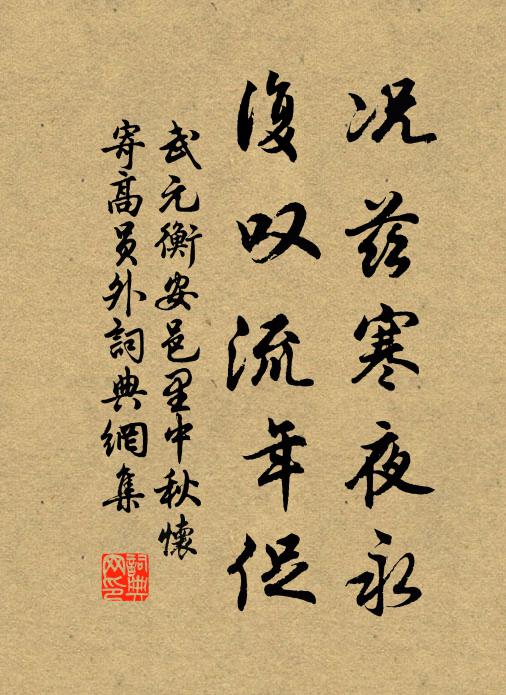 况茲寒夜永
復叹流年促
武元衡安邑里中秋懷
寄高员外詞典網集
詞典
网印